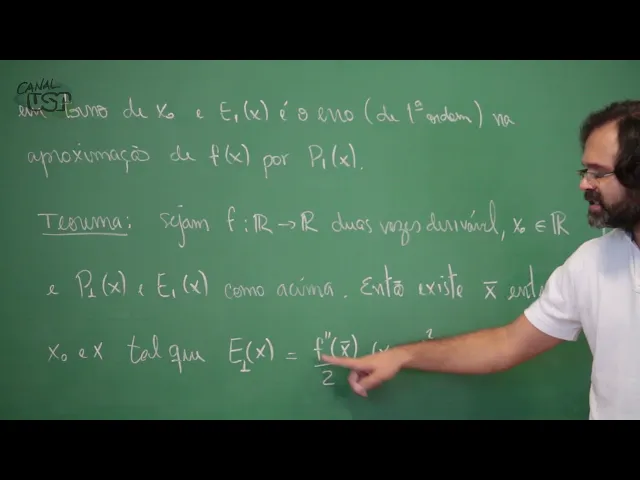 CANAL USP
em torno de x₀ e E₁(x) é o erro (de 1ª ordem) na
aproximação de f(x) por P₁(x).
Teorema: sejam f: ℝ → ℝ duas vezes derivável, x₀ ∈ ℝ
e P₁(x) e E₁(x) como acima. Então existe x̄
x₀ e x tal que E₁(x) = f''(x̄)/2 (x ²